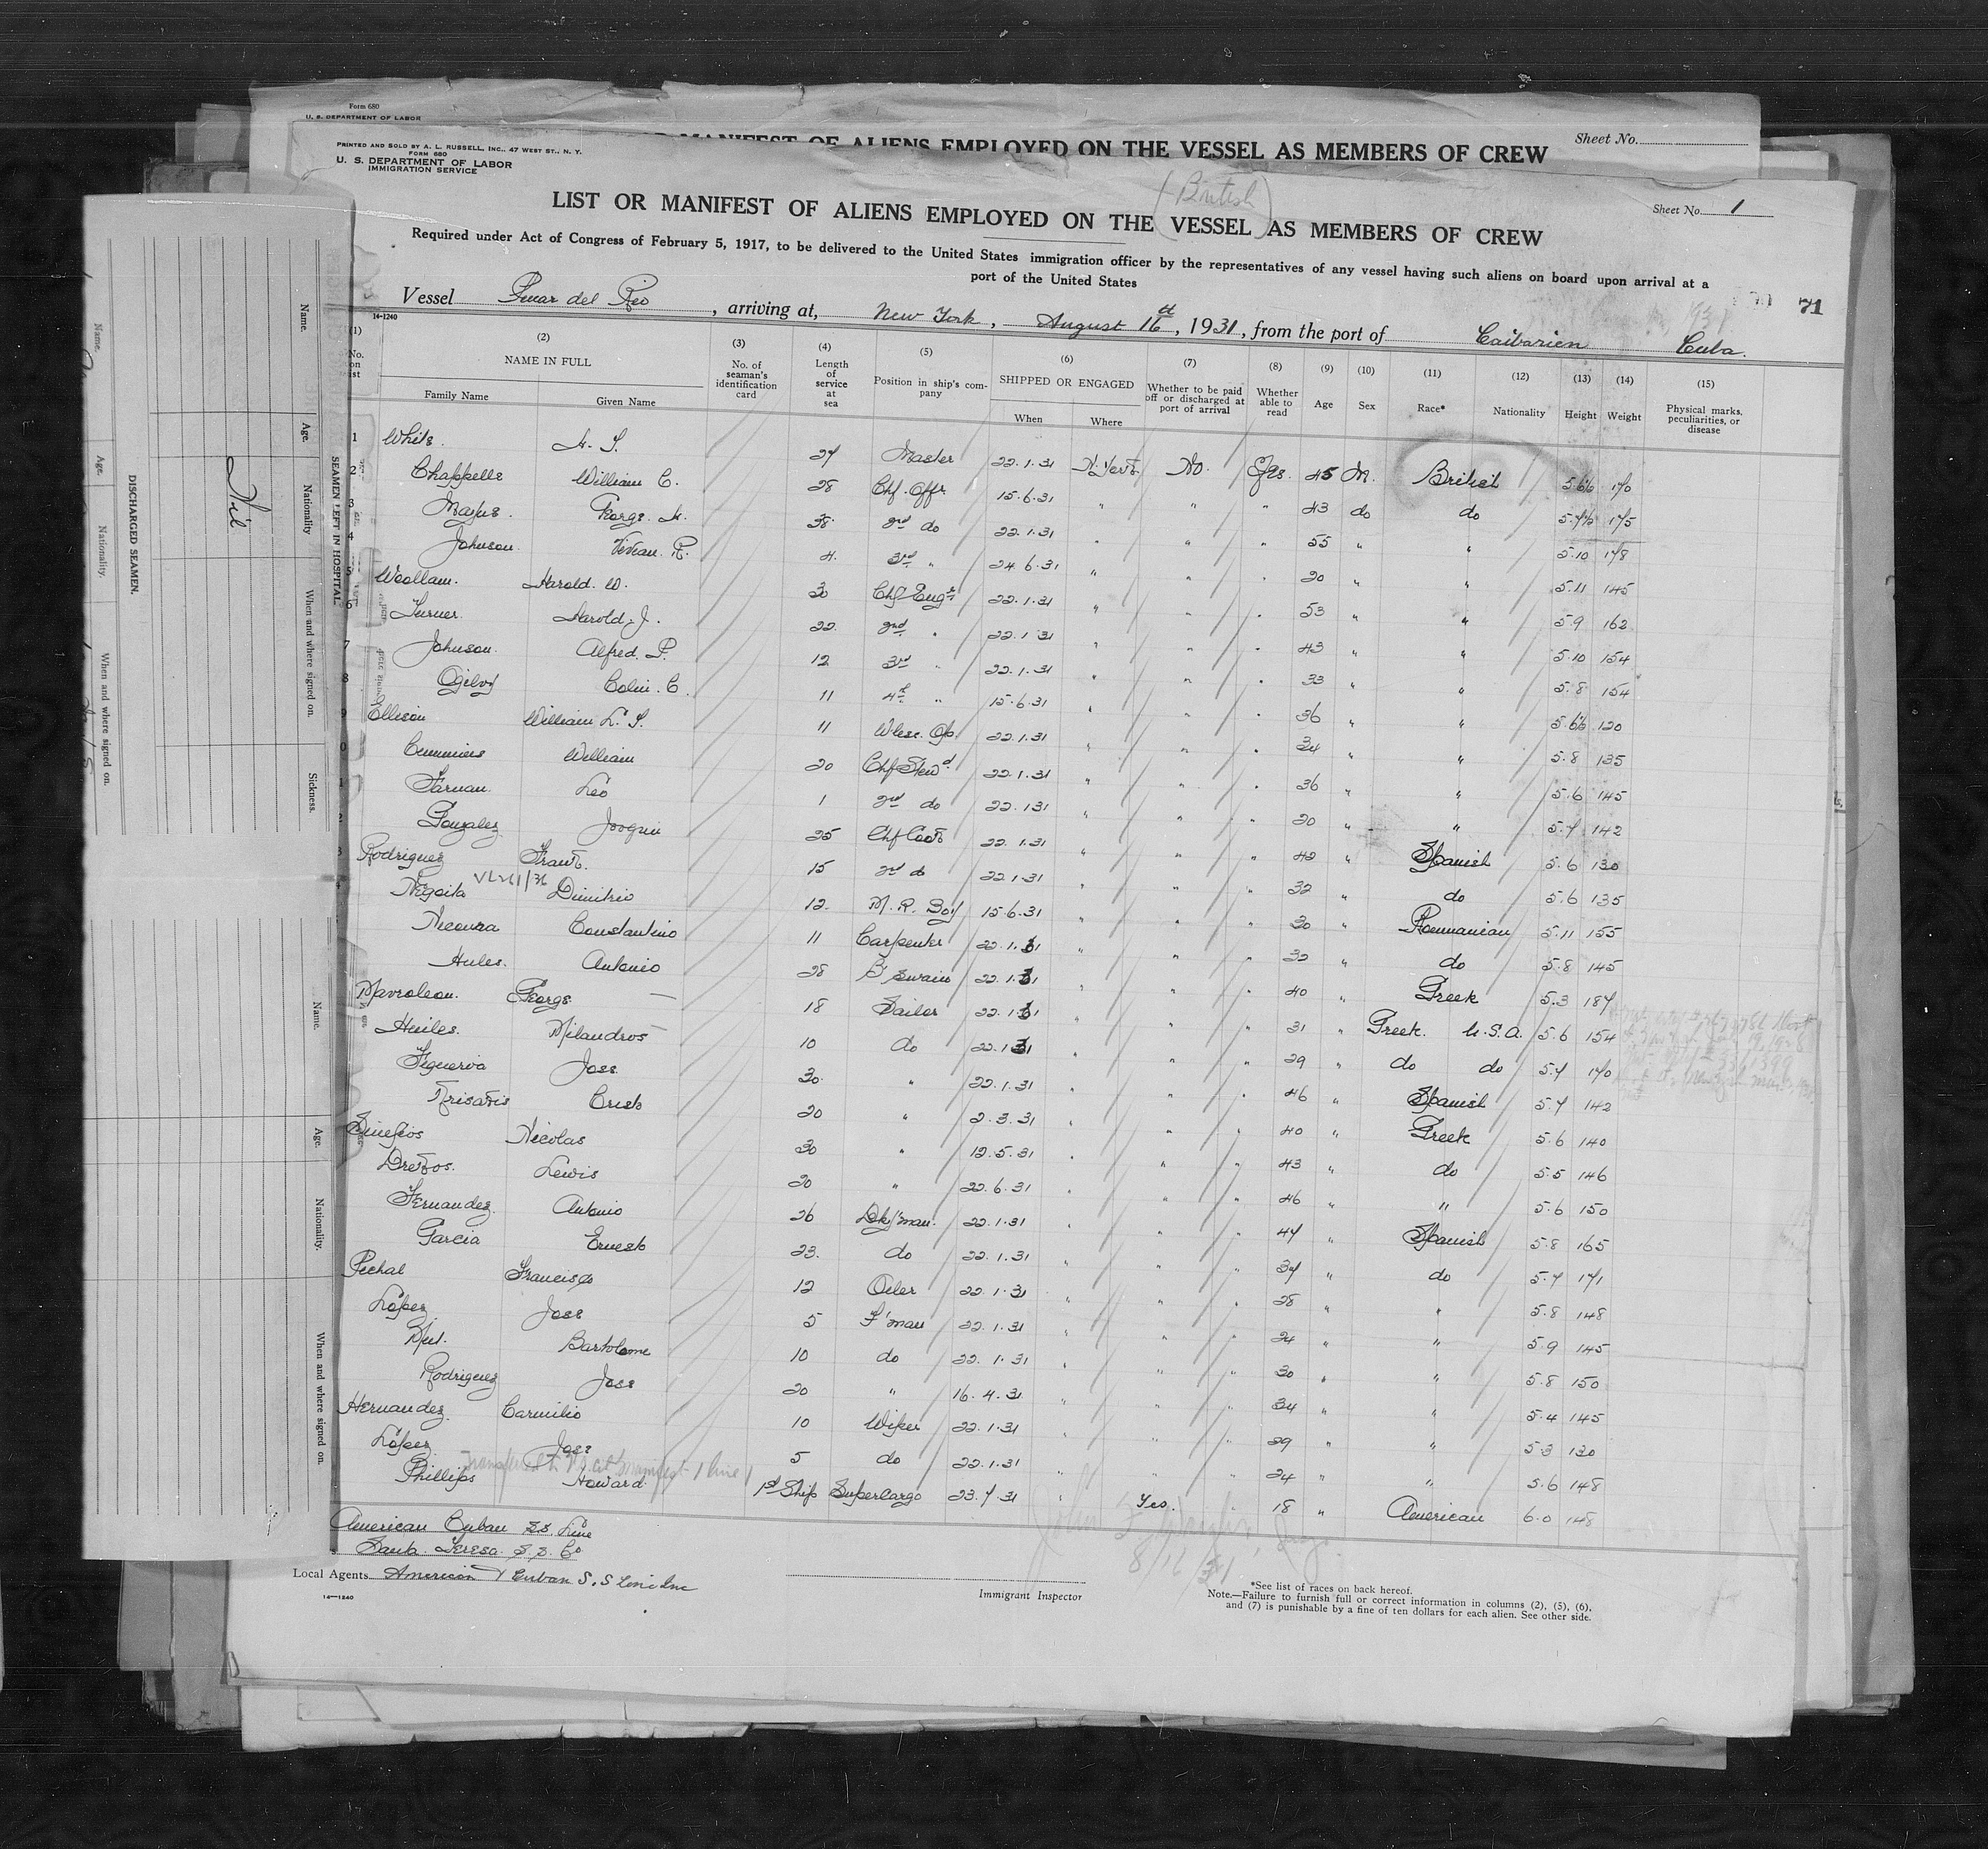 Form 680
U. S. DEPARTMENT OF LABOR
MANIFEST OF ALIENS EMPLOYED ON THE VESSEL AS MEMBERS OF CREW
Sheet No.
PRINTED AND SOLD BY A. L. RUSSELL, INC., 47 WEST ST., N. Y.
FORM 680
U. S. DEPARTMENT OF LABOR
IMMIGRATION SERVICE
(British)
Sheet No. 1
LIST OR MANIFEST OF ALIENS EMPLOYED ON THE VESSEL AS MEMBERS OF CREW
Required under Act of Congress of February 5, 1917, to be delivered to the United States immigration officer by the representatives of any vessel having such aliens on board upon arrival at a
port of the United States
71
Vessel Pinar del Rio, arriving at, New York, August 16th, 1931, from the port of Caibarien Cuba.
14-1240
(1) (2) (3) (4) (5) (6) (7) (8) (9) (10) (11) (12) (13) (14) (15)
No. on list NAME IN FULL Family Name Given Name No. of seaman's identification card Length of service at sea Position in ship's company SHIPPED OR ENGAGED When Where Whether to be paid off or discharged at port of arrival Whether able to read Age Sex Race* Nationality Height Weight Physical marks, peculiarities, or disease
1 White. 27 Master 22.1.31 N. York No. Yes. 45 M. British 5.6½ 170
2 Chappelle William C. 28 Chf. Offr. 15.6.31 " " " 43 do do 5.7½ 175
3 George. 38 2nd do 22.1.31 " " " 55 " " 5.10 178
4 Johnson. Vivian. R. 4. 3rd " 24.6.31 " " " 20 " " 5.11 145
5 Woollam. Harold. W. 30 Chf Engr 22.1.31 " " " 53 " " 5.9 162
6 Turner. Harold. J. 22. 2nd " 22.1.31 " " " 43 " " 5.10 154
7 Johnson. Alfred. P. 12 3rd " 22.1.31 " " " 33 " " 5.8 154
8 Ogilvy Colin. C. 11 4th " 15.6.31 " " " 36 " " 5.6½ 120
9 Ellison William L. S. 11 Wless. Op. 22.1.31 " " " 34 " " 5.8 135
Cummins William 20 Chf Stewd 22.1.31 " " " 36 " " 5.6 145
Farnan. Leo 1 2nd do 22.1.31 " " " 20 " " 5.7 142
Gonzalez Joaquin 25 Chf Cook 22.1.31 " " " 42 " Spanish 5.6 130
Rodriguez Frank. 15 2nd do 22.1.31 " " " 32 " do 5.6 135
Negoita Dimitrio 12. M. R. Boy 15.6.31 " " " 30 " Roumanian 5.11 155
Constantino 11 Carpenter 22.1.31 " " " 32 " do 5.8 145
Hules. Antonio 28 B'swain 22.1.31 " " 40 " Greek 5.3 187
Mavroleon. George. 18 Sailor 22.1.31 " " 31 " Greek. U.S.A. 5.6 154
Milandros 10 do 22.1.31 " " " 29 " do do 5.7 170
Figueroa Jose 30. " 22.1.31 " " " 46 " Spanish 5.7 142
Cristo 20 " 2.3.31 " " " 40 " Greek 5.6 140
Nicolas 30 " 12.5.31 " " " 43 " do 5.5 146
Lewis 20 " 22.6.31 " " " 46 " " 5.6 150
Fernandez. Antonio 26 Dk/man. 22.1.31 " " " 44 " Spanish 5.8 165
Garcia Ernesto 23. do 22.1.31 " " " 37 " do 5.7 171
Francisco 12 Oiler 22.1.31 " " " 28 " " 5.8 148
Lopez Jose 5 F'man 22.1.31 " " " 24 " " 5.9 145
Bartolome 10 do 22.1.31 " " " 30 " " 5.8 150
Rodriguez Jose 20 " 16.4.31 " " " 34 " " 5.4 145
Hernandez Carmilio 10 Wiper 22.1.31 " " " 29 " " 5.3 130
Lopez. Jose 5 do 22.1.31 " " " 24 " " 5.6 148
Phillips Howard 1st Ship Supercargo 23.7.31 " Yes. 18 " American 6.0 148
American Cuban S.S. Line
Santa Teresa. S.S. Co
Local Agents American & Cuban S.S Line Inc
8/16/31
14—1240
Immigrant Inspector
*See list of races on back hereof.
Note.—Failure to furnish full or correct information in columns (2), (5), (6), and (7) is punishable by a fine of ten dollars for each alien. See other side.
SEAMEN LEFT IN HOSPITAL.
Name. Age. Nationality When and where signed on. Sickness.
Nil
DISCHARGED SEAMEN.
Name. Age. Nationality. When and where signed on.
Name. Age. Nationality. When and where signed on.